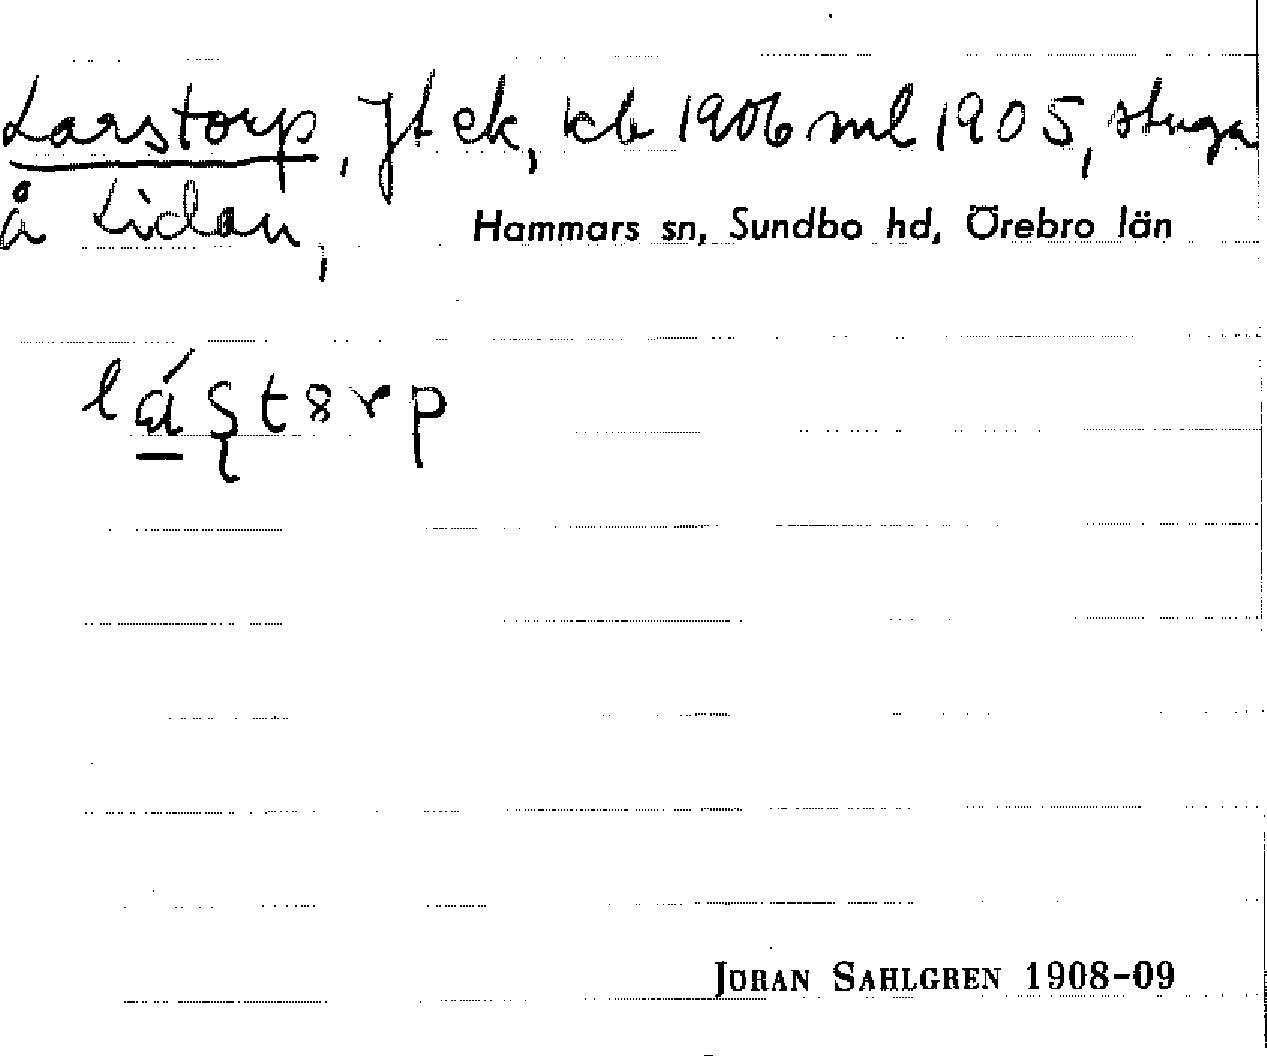 Larstorp, Jt ek, kb 1906 ml 1905, stuga
å Lidan,
Hammars sn, Sundbo hd, Örebro län
lás̨t8rp
JÖRAN SAHLGREN 1908-09